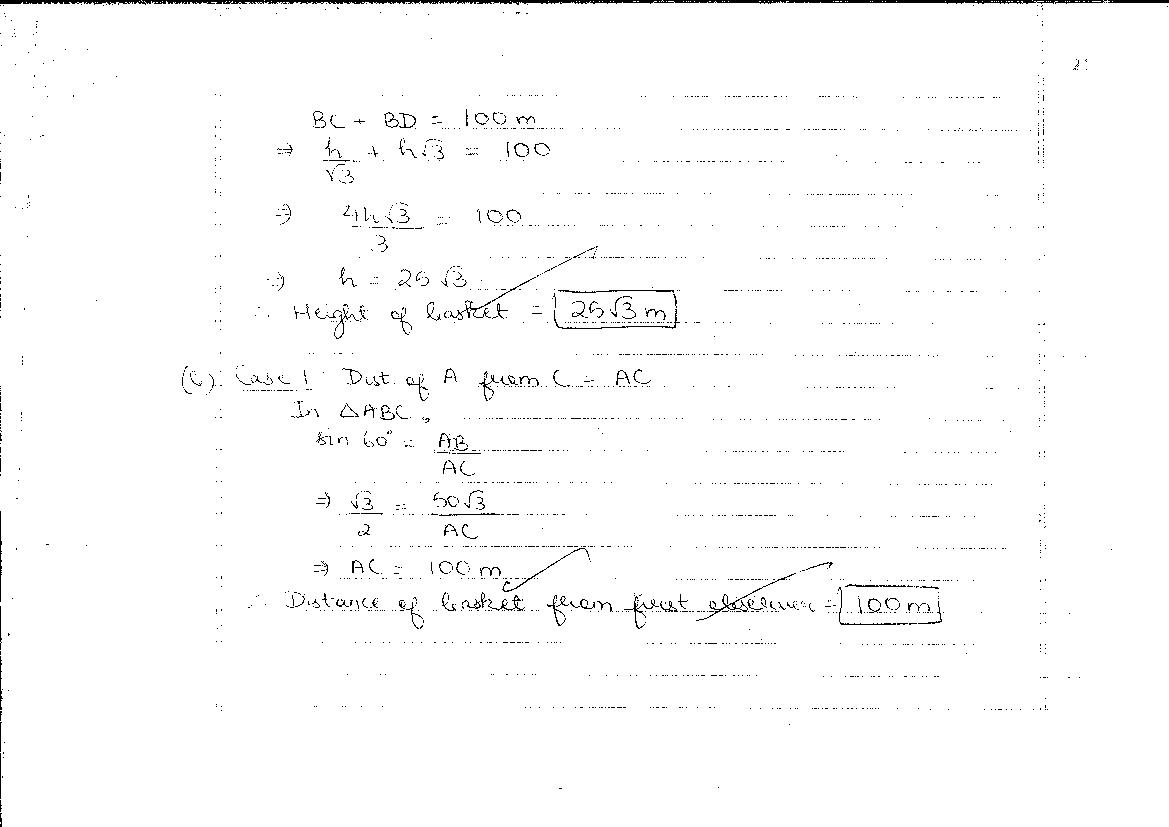 21
BC + BD = 100 m
⇒ h/√3 + h√3 = 100
⇒ 4h√3/3 = 100
⇒ h = 25√3
∴ Height of basket = 25√3 m
Case 1 Dist. of A from C = AC
In △ABC,
sin 60° = AB/AC
⇒ √3/2 = 50√3/AC
⇒ AC = 100 m
∴ Distance of basket from first observer = 100 m